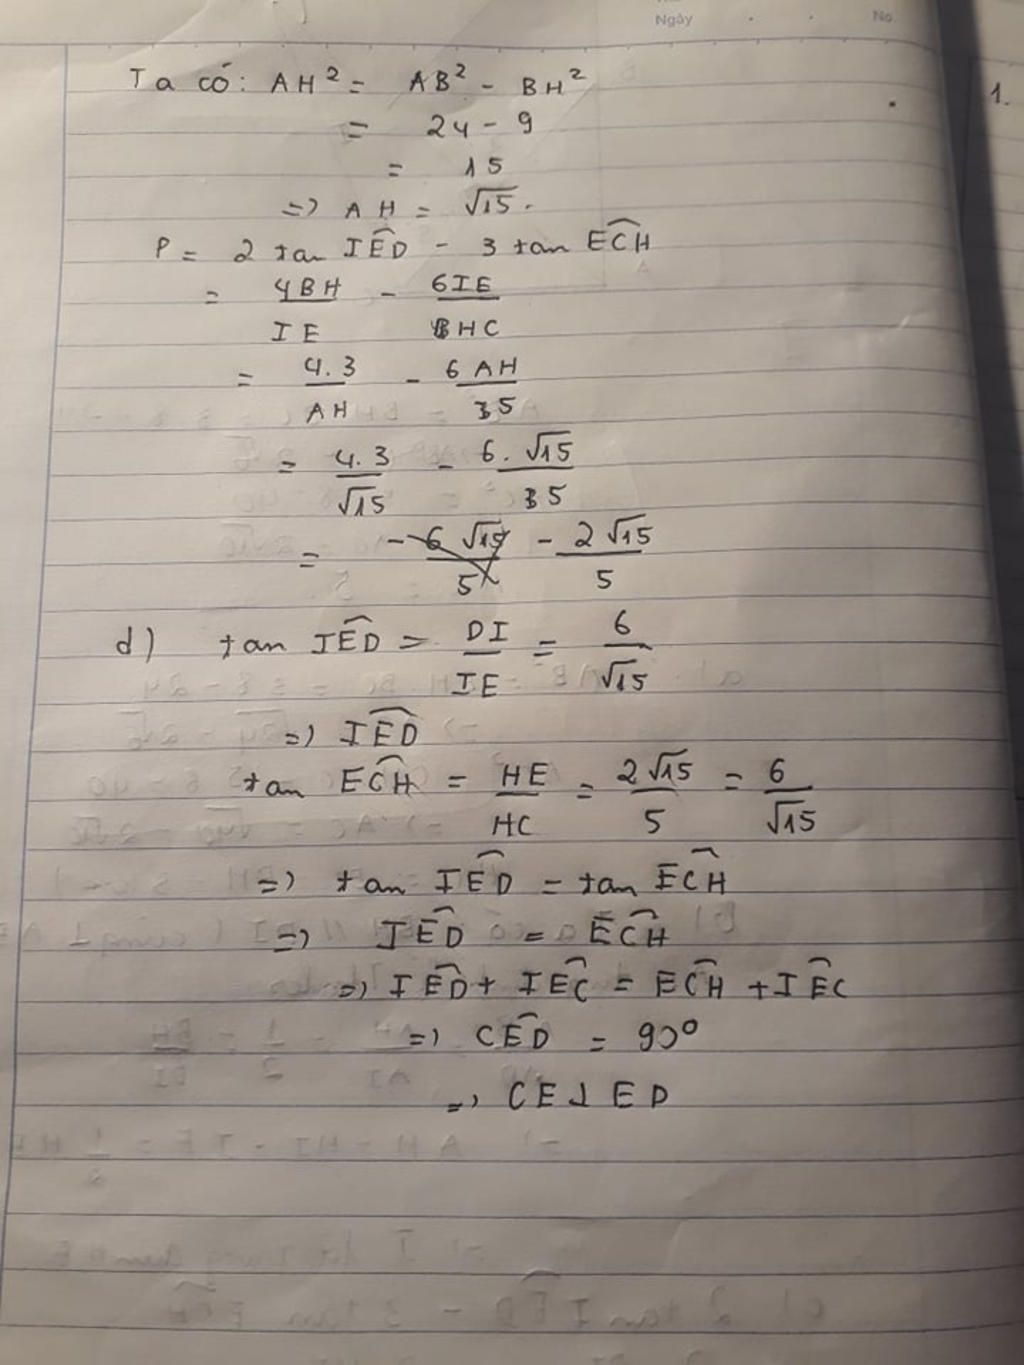 Ngày . . No.
1.
Ta có: AH² = AB² - BH²
= 24 - 9
= 15
=> AH = √15.
P = 2 tan IED - 3 tan ECH
= 4BH/IE - 6IE/HC
= 4.3/AH - 6AH/5
= 4.3/√15 - 6.√15/5
= - 6√15/5 - 2√15/5
d) tan IED = DI/IE = 6/√15
=> IED
tan ECH = HE/HC = 2√15/5 = 6/√15
=> tan IED = tan ECH
=> IED = ECH
=> IED + IEC = ECH + IEC
=> CED = 90°
=> CE⊥ED